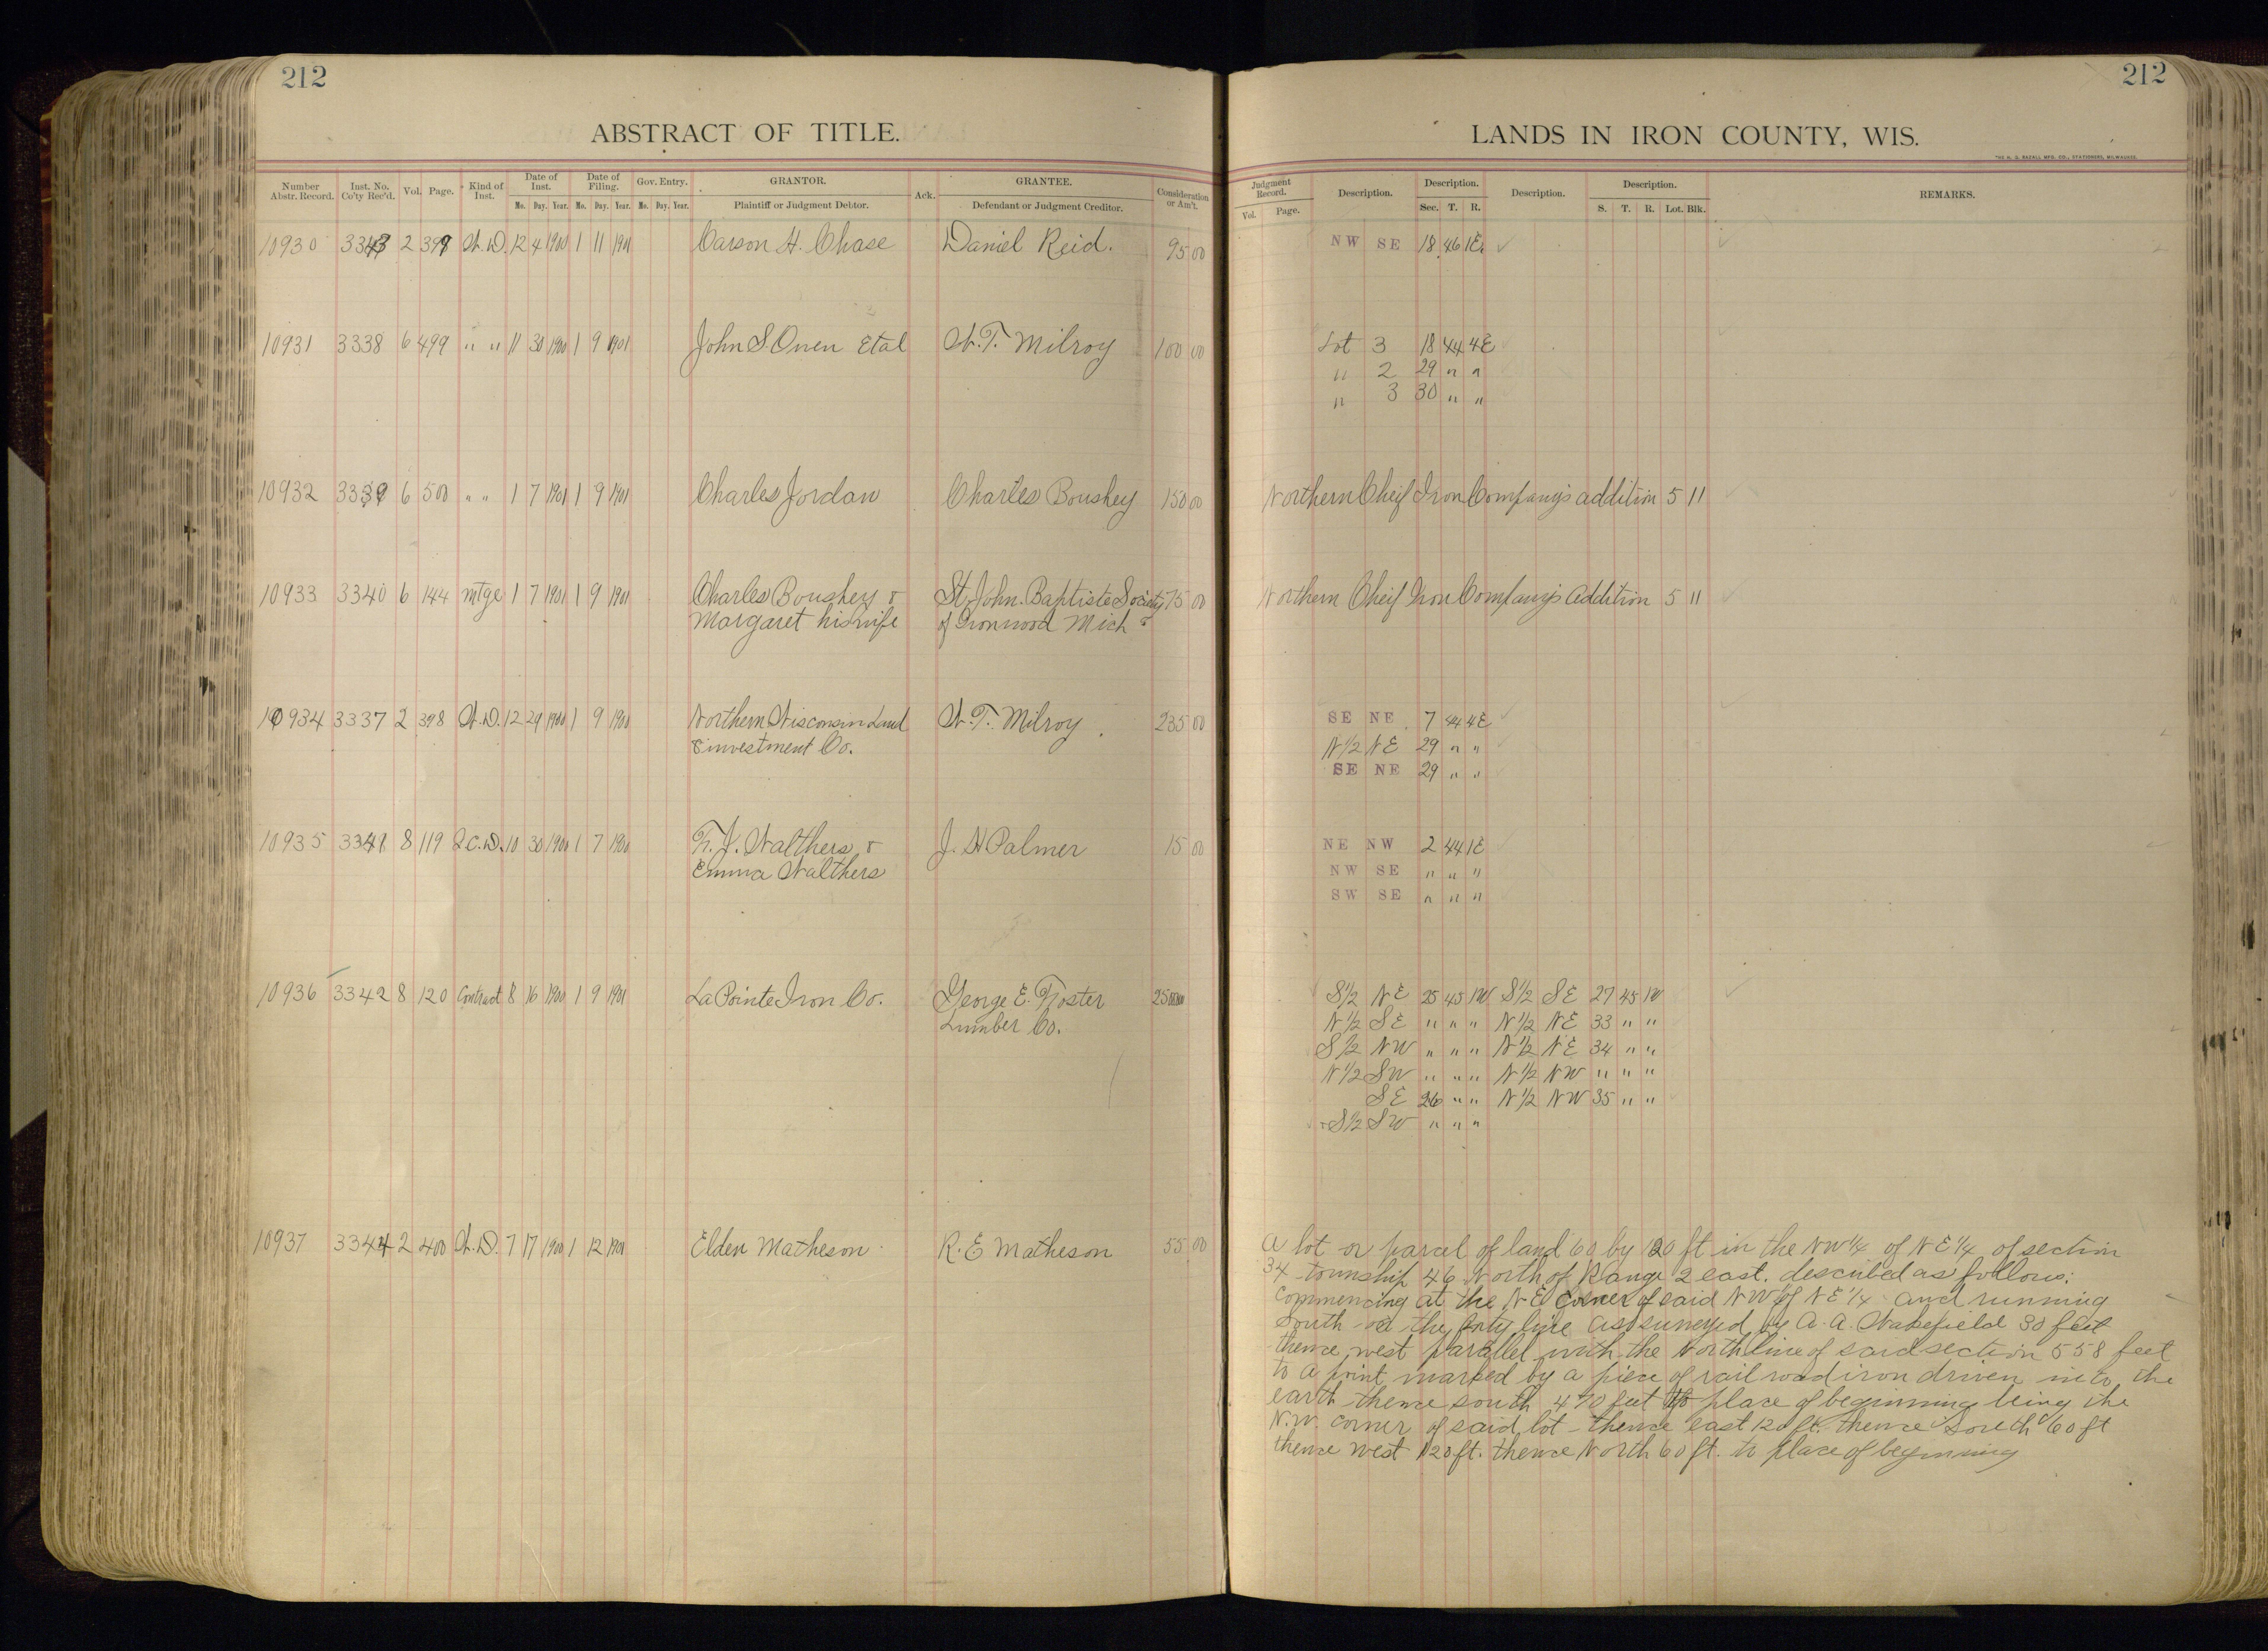 212
ABSTRACT OF TITLE.
Number Abstr. Record. Inst. No. Co'ty Rec'd. Vol. Page. Kind of Inst. Date of Inst. Mo. Day. Year. Date of Filing. Mo. Day. Year. Gov. Entry. Mo. Day. Year. GRANTOR. Plaintiff or Judgment Debtor. Ack. GRANTEE. Defendant or Judgment Creditor. Consideration or Am't.
10930 3343 2 399 W.D. 12 4 1900 1 11 1901 Carson H. Chase Daniel Reid. 95 00
10931 3338 6 499 " " 11 30 1900 1 9 1901 John S. Owen Etal W.T. Milroy 100 00
10932 3339 6 500 " " 1 7 1901 1 9 1901 Charles Jordan Charles Boushey 150 00
10933 3340 6 144 mtge 1 7 1901 1 9 1901 Charles Boushey & St. John Baptiste Society 75 00
Margaret his wife of Ironwood Mich
10934 3337 2 398 W.D. 12 29 1900 1 9 1900 Northern Wisconsin Land W.T. Milroy 235 00
& investment Co.
10935 3341 8 119 Q.C.D. 10 30 1900 1 7 1900 F.J. Walthers & J. H Palmer 15 00
Emma Walthers
10936 3342 8 120 Contract 8 16 1900 1 9 1901 La Pointe Iron Co. George E. Foster
Lumber Co.
10937 3344 2 400 W.D. 7 17 1900 1 12 1901 Elden Matheson R.E Matheson 55 00
212
LANDS IN IRON COUNTY, WIS.
THE H. G. RAZALL MFG. CO., STATIONERS, MILWAUKEE.
Judgment Record. Vol. Page. Description. Description. Sec. T. R. Description. Description. S. T. R. Lot. Blk. REMARKS.
NW SE 18 46 1E
Lot 3 18 44 4E
" 2 29 " "
" 3 30 " "
Northern Cheif Iron Company's addition 5 11
Northern Cheif Iron Company's Addition 5 11
SE NE 7 44 4E
N1/2 NE 29 " "
SE NE 29 " "
NE NW 2 44 1E
NW SE " " "
SW SE " " "
S1/2 NE 25 45 1W S1/2 SE 27 45 1W
N1/2 SE " " " N1/2 NE 33 " "
S1/2 NW " " " N1/2 NE 34 " "
N1/2 SW " " " N1/2 NW " " "
SE 26 " " N1/2 NW 35 " "
S1/2 SW " " "
A lot or parcel of land 60 by 120 ft in the NW1/4 of NE1/4 of section
34 township 46 North of Range 2 east. described as follows:
Commencing at the NE corner of said NW of NE1/4 and running
South on the forty line as surveyed by A.A. Wakefield 30 feet
thence west parallel with the North line of said section 558 feet
to a point marked by a piece of rail road iron driven into the
earth thence south 470 feet to place of beginning being the
N.W. corner of said lot - thence east 120 ft. thence South 60 ft
thence west 120 ft. thence North 60 ft. to place of beginning